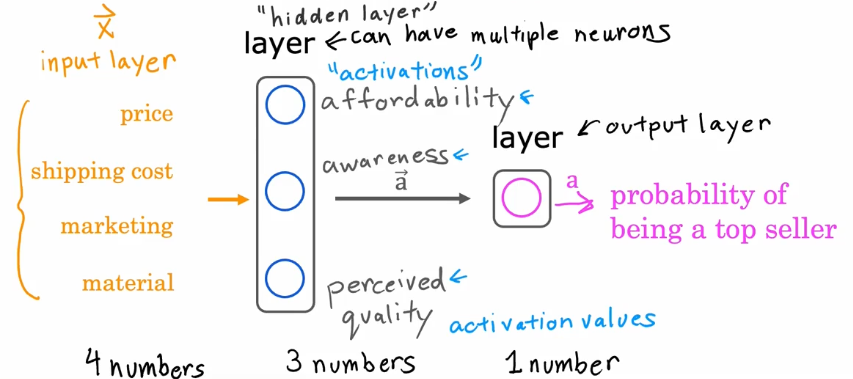 x⃗
input layer
price
shipping cost
marketing
material
4 numbers
"hidden layer"
layer ← can have multiple neurons
"activations"
affordability ←
awareness ←
a⃗
perceived ←
quality
activation values
3 numbers
layer ← output layer
a
probability of
being a top seller
1 number